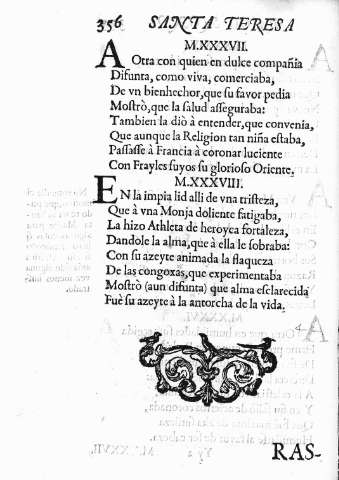 356 SANTA TERESA
M.XXXVII.
A Otra con quien en dulce compañia
Difunta, como viva, comerciaba,
De vn bienhechor, que su favor pedia
Mostrò, que la salud asseguraba:
Tambien la diò à entender, que convenia,
Que aunque la Religion tan niña estaba,
Passasse à Francia à coronar luciente
Con Frayles suyos su glorioso Oriente.
M.XXXVIII.
EN la impia lid alli de vna tristeza,
Que à vna Monja doliente fatigaba,
La hizo Athleta de heroyca fortaleza,
Dandole la alma, que à ella le sobraba:
Con su azeyte animada la flaqueza
De las congoxas, que experimentaba
Mostrò (aun difunta) que alma esclarecida
Fuè su azeyte à la antorcha de la vida.
RAS-